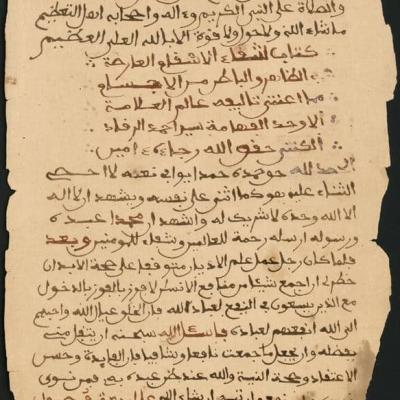 والصلاة على النبي الكريم وءاله واصحابه
ماشاء الله ولا حول ولا قوة الا بالله العلي العظيم
كتاب لشفاء الاسقام العارضة
الظاهر والباطن من الاجسام
مما اعتنى بتاليفه عالم العلامة
الاوحد الفهامة سيد احمد الرقاد
الكنتي حقق الله رجاءه ءامين
الحمد لله حق حمده حمدا يوافي نعمه لا احصي
الثناء عليه هو كما اثنى على نفسه ونشهد ان لا اله
الا الله وحده لا شريك له واشهد ان محمدا عبده
ورسوله ارسله رحمة للعالمين وشفاء للمومنين وبعد
فلما كان رجل عمل علم الاديان متوقفا على صحة الابدان
خطر لي ان اجمع شيئا من منافع الانسان لافوز بالفوز بالدخول
مع الذين يسعون في النفع لعباد الله فان الخلق عيال الله واحبهم
الى الله انفعهم لعباده فاسئل الله سبحانه ان ينفعني
بفضله وان يجعل ما جمعت نافعا وشافيا فان الفايدة وحسن
الاعتقاد وصحة النية والله عند ظن عبده به فمن نوى